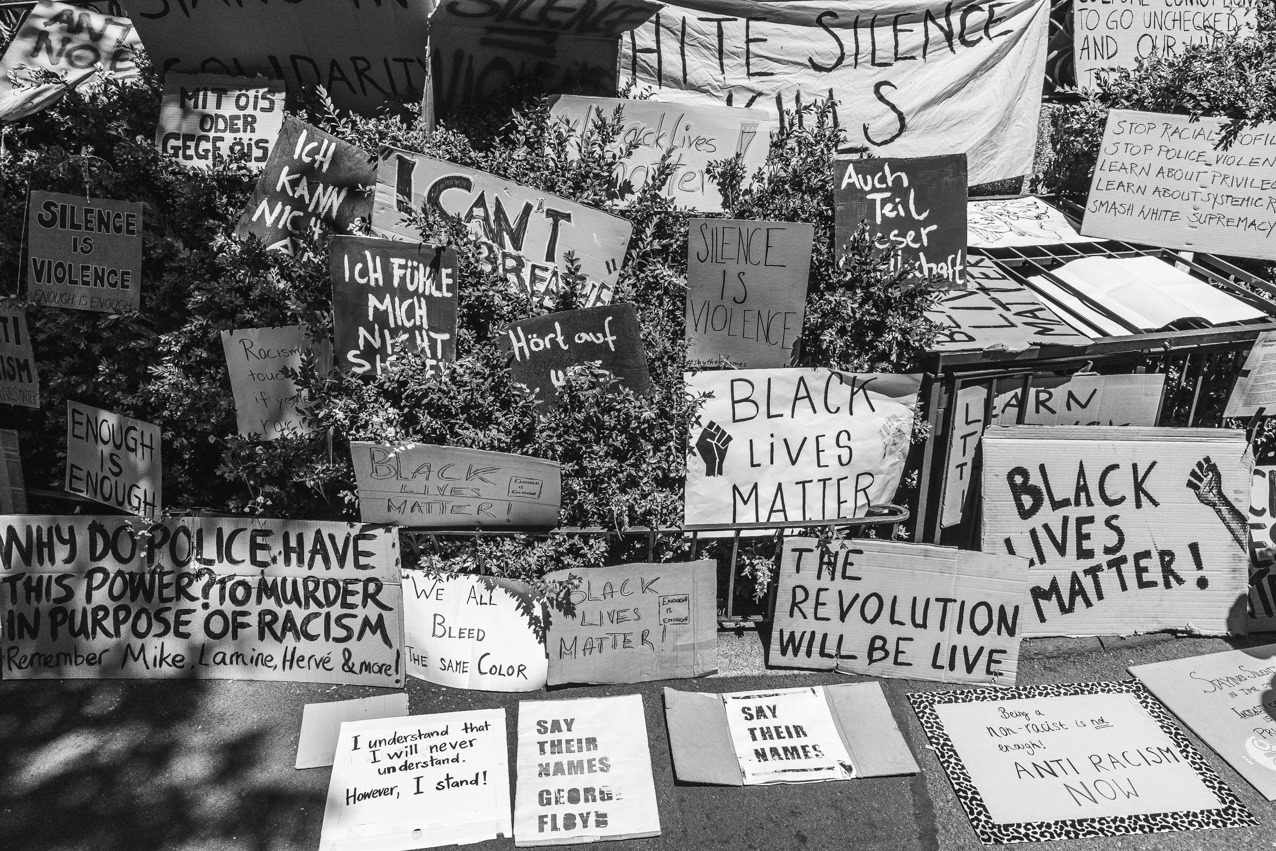 SILENCE
VIOLENCE
SOLIDARITY
HITE SILENCE
TO GO UNCHECKED
AND OUR
MIT ÖIS
ODER
GEGE ÖIS
ICH
KANN
NICH
I CAN'T
BREA
Black Lives
matter
Auch
Teil
ieser
llschaft
STOP RACIAL
STOP POLICE VIOLEN
LEARN ABOUT PRIVILEG
LEARN ABOUT SYSTEMIC R
SMASH WHITE SUPREMACY
SILENCE
IS
VIOLENCE
ENOUGH IS ENOUGH
ICH FÜHLE
MICH
NICHT
SILENCE
IS
VIOLENCE
Hört auf
Racism
touc
if yo
raci
ENOUGH
IS
ENOUGH
BLACK
LIVES
MATTER!
ENOUGH
IS
ENOUGH
BLACK
LIVES
MATTER
ARN
BLACK
LIVES
MATTER!
WHY DO POLICE HAVE
THIS POWER? TO MURDER
IN PURPOSE OF RACISM
Remember Mike, Lamine, Hervé & more!
WE ALL
BLEED
THE SAME COLOR
BLACK
LIVES
MATTER!
ENOUGH
IS
ENOUGH
THE
REVOLUTION
WILL BE LIVE
I understand that
I will never
understand.
However, I stand!
SAY
THEIR
NAMES
GEORGE
FLOYD
SAY
THEIR
NAMES
Being a
non-racist is not
enough!
ANTI RACISM
NOW